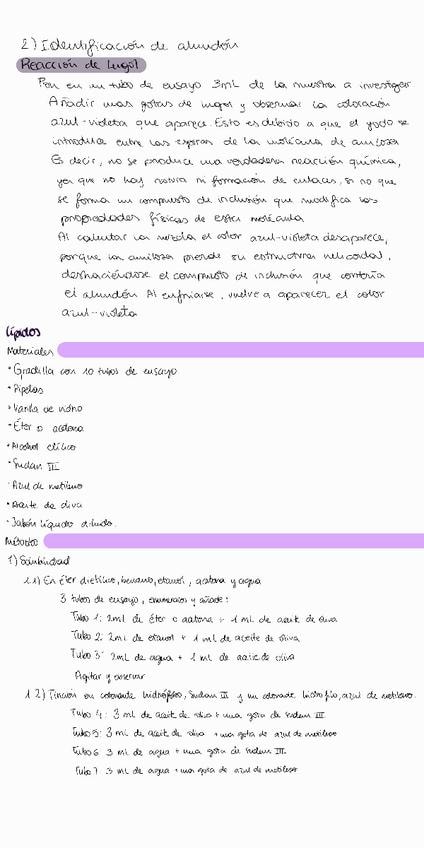 2) Identificación de almidón
Reacción de Lugol
Pon en un tubo de ensayo 3ml de la muestra a investigar
Añadir unas gotas de lugol y observar la coloración
azul-violeta que aparece. Esto es debido a que el yodo se
introduce entre las espiras de la molécula de amilosa
Es decir, no se produce una verdadera reacción química,
ya que no hay rotura ni formación de enlaces, si no que
se forma un compuesto de inclusión que modifica las
propiedades físicas de esta molécula
Al calentar la mezcla el color azul-violeta desaparece,
porque la amilosa pierde su estructura helicoidal,
deshaciéndose el compuesto de inclusión que contenía
el almidón Al enfriarse, vuelve a aparecer el color
azul-violeta
Lípidos
Materiales
• Gradilla con 10 tubos de ensayo
• Pipetas
• Varilla de vidrio
• Éter o acetona
• Alcohol etílico
• Sudan III
• Azul de metileno
• Aceite de oliva
• Jabón líquido diluido.
Métodos
1) Solubilidad
1.1) En Éter dietílico, benceno, etanol, acetona y agua
3 tubos de ensayo, enumerarlos y añade:
Tubo 1: 2ml de éter o acetona + 1 ml de aceite de oliva
Tubo 2: 2ml de etanol + 1 ml de aceite de oliva
Tubo 3: 2ml de agua + 1 ml de aceite de oliva
Agitar y observar
1.2) Tinción con colorante hidrófobo, Sudan III y un colorante hidrofílico, azul de metileno.
Tubo 4: 3 ml de aceite de oliva + una gota de sudan III
Tubo 5: 3 ml de aceite de oliva + una gota de azul de metileno
Tubo 6 3 ml de agua + una gota de sudan III.
Tubo 7 3 ml de agua + una gota de azul de metileno